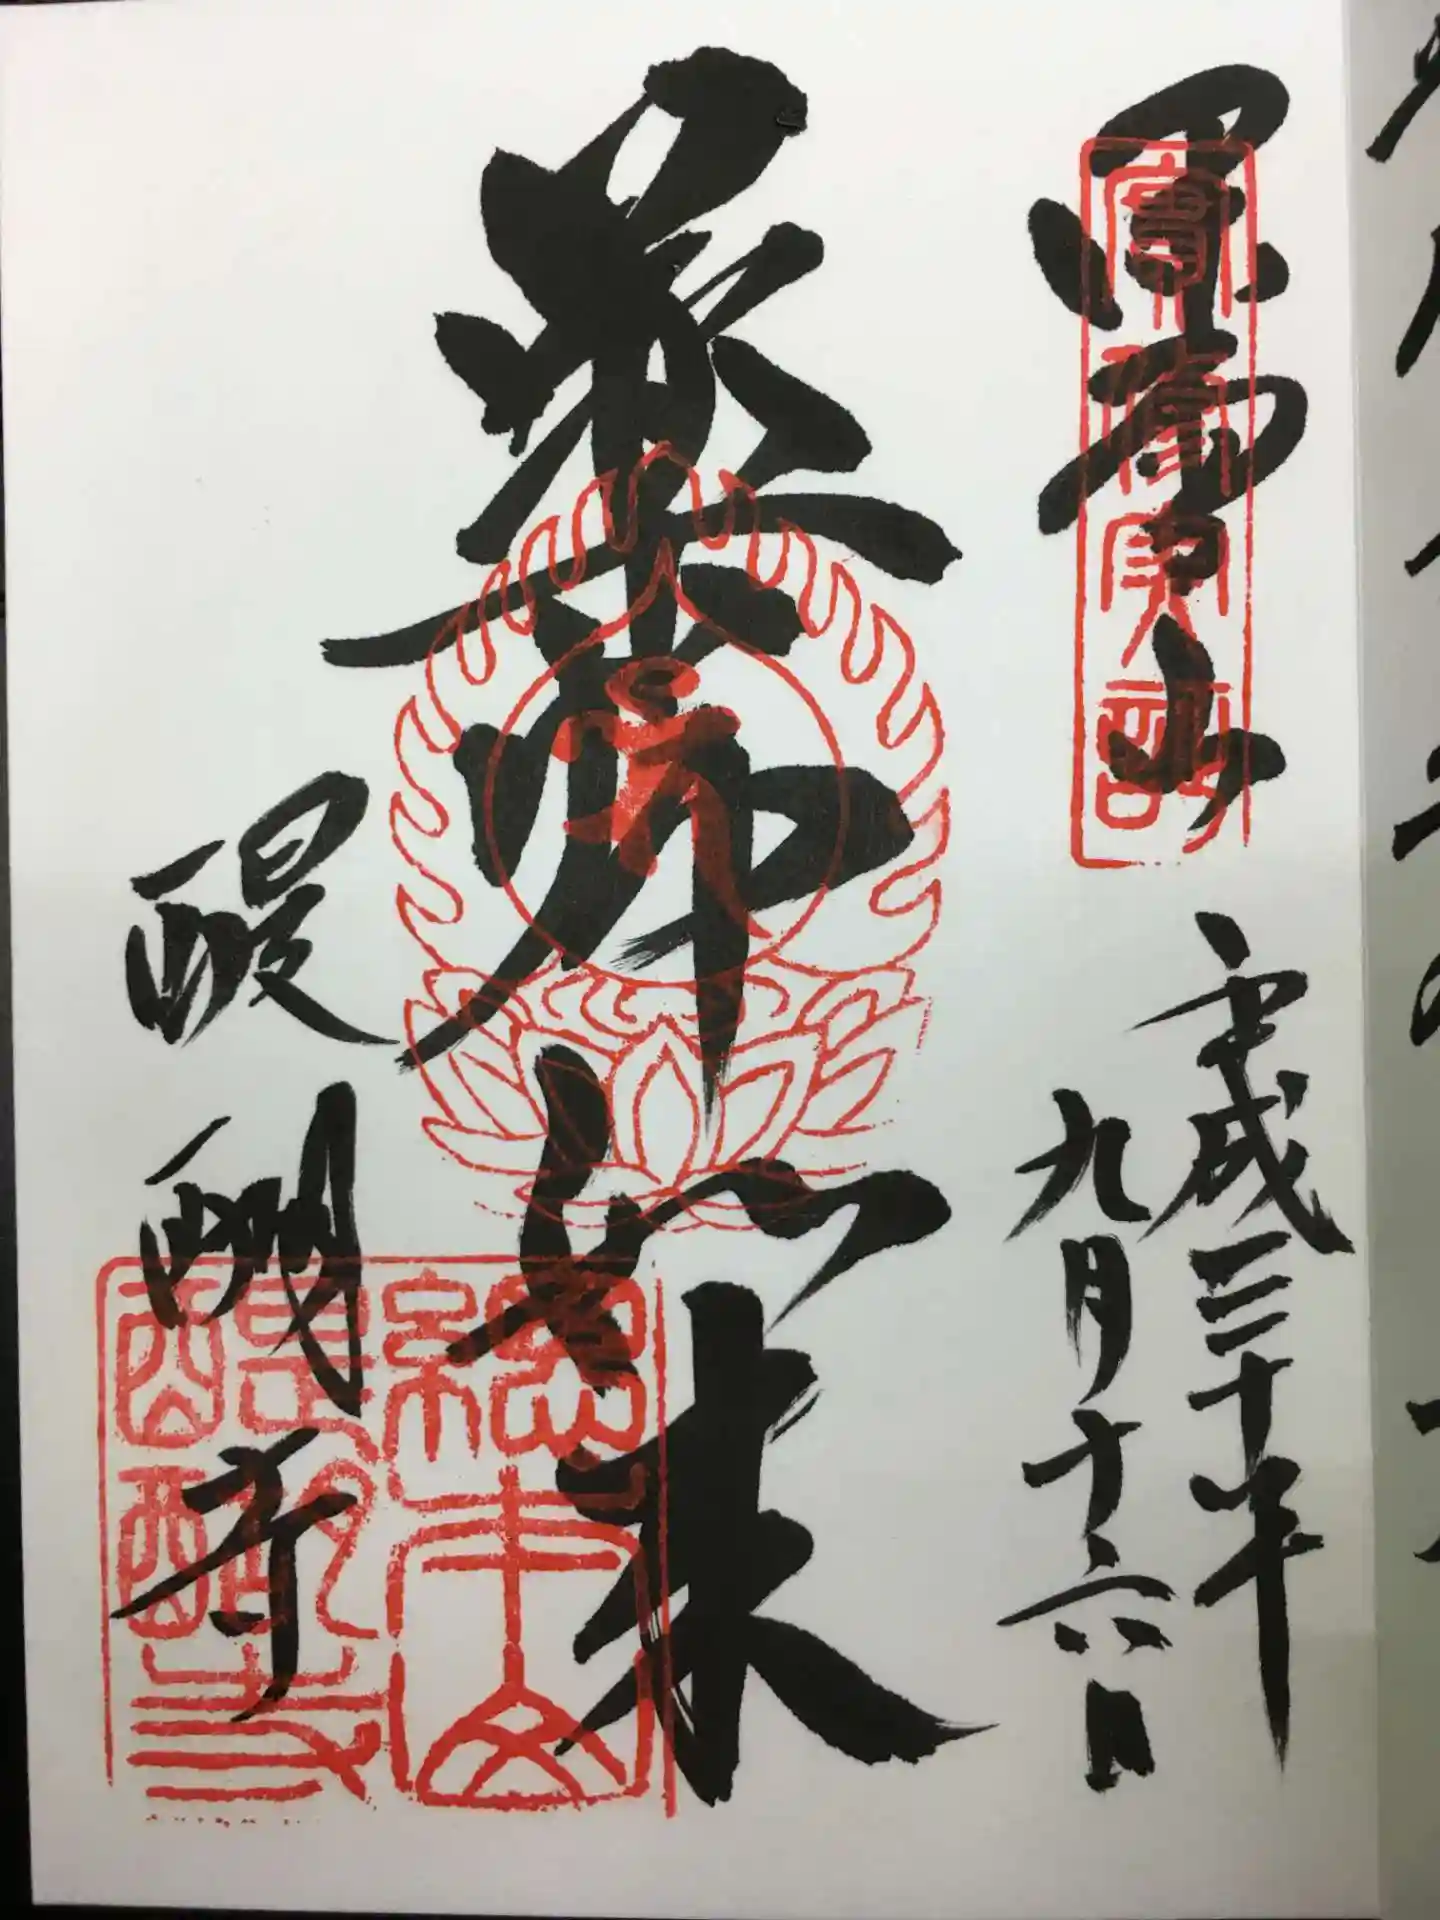 深雪山
平成三十年
九月十六日
薬師如来
醍醐寺
總本山
醍醐寺